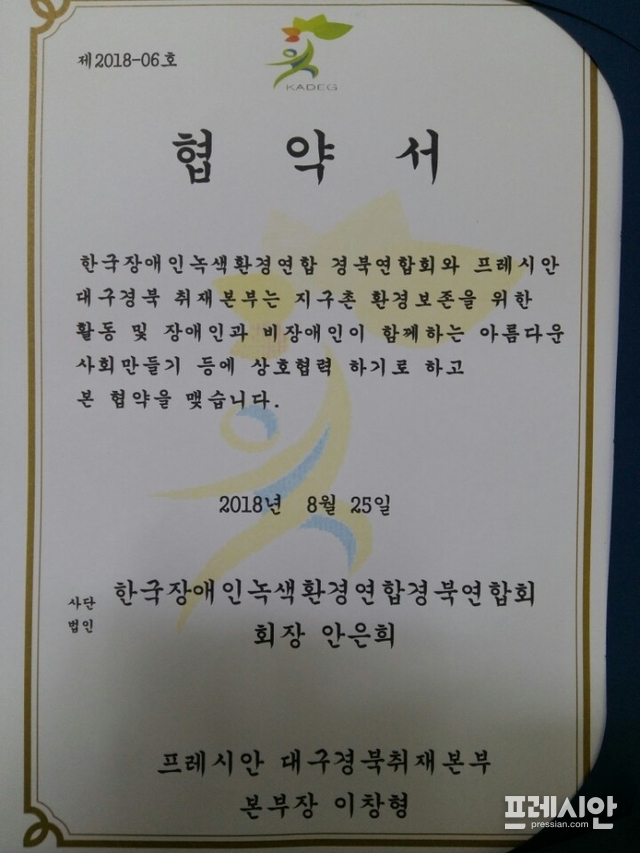 제2018-06호
KADEG
협 약 서
한국장애인녹색환경연합 경북연합회와 프레시안
대구경북 취재본부는 지구촌 환경보존을 위한
활동 및 장애인과 비장애인이 함께하는 아름다운
사회만들기 등에 상호협력 하기로 하고
본 협약을 맺습니다.
2018년 8월 25일
사단
법인
한국장애인녹색환경연합경북연합회
회장 안은희
프레시안 대구경북취재본부
본부장 이창형
프레시안
pressian.com